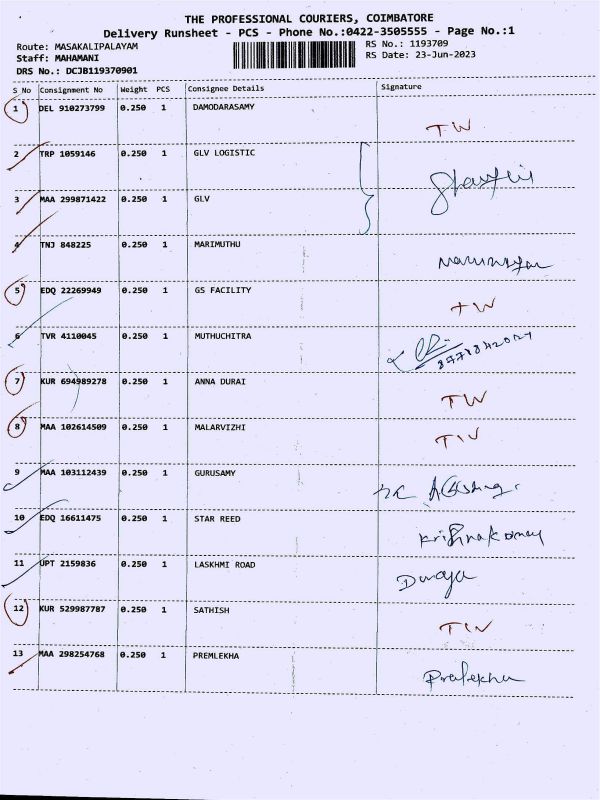 THE PROFESSIONAL COURIERS, COIMBATORE
Delivery Runsheet - PCS - Phone No.:0422-3505555 - Page No.:1
Route: MASAKALIPALAYAM
Staff: MAHAMANI
DRS No.: DCJB119370901
RS No.: 1193709
RS Date: 23-Jun-2023
S No Consignment No Weight PCS Consignee Details Signature
1 DEL 910273799 0.250 1 DAMODARASAMY TW
2 TRP 1059146 0.250 1 GLV LOGISTIC
3 MAA 299871422 0.250 1 GLV
4 TNJ 848225 0.250 1 MARIMUTHU
5 EDQ 22269949 0.250 1 GS FACILITY TW
6 TVR 4110045 0.250 1 MUTHUCHITRA
7 KUR 694989278 0.250 1 ANNA DURAI TW
8 MAA 102614509 0.250 1 MALARVIZHI TW
9 MAA 103112439 0.250 1 GURUSAMY
10 EDQ 16611475 0.250 1 STAR REED
11 UPT 2159836 0.250 1 LASKHMI ROAD
12 KUR 529987787 0.250 1 SATHISH TW
13 MAA 298254768 0.250 1 PREMLEKHA